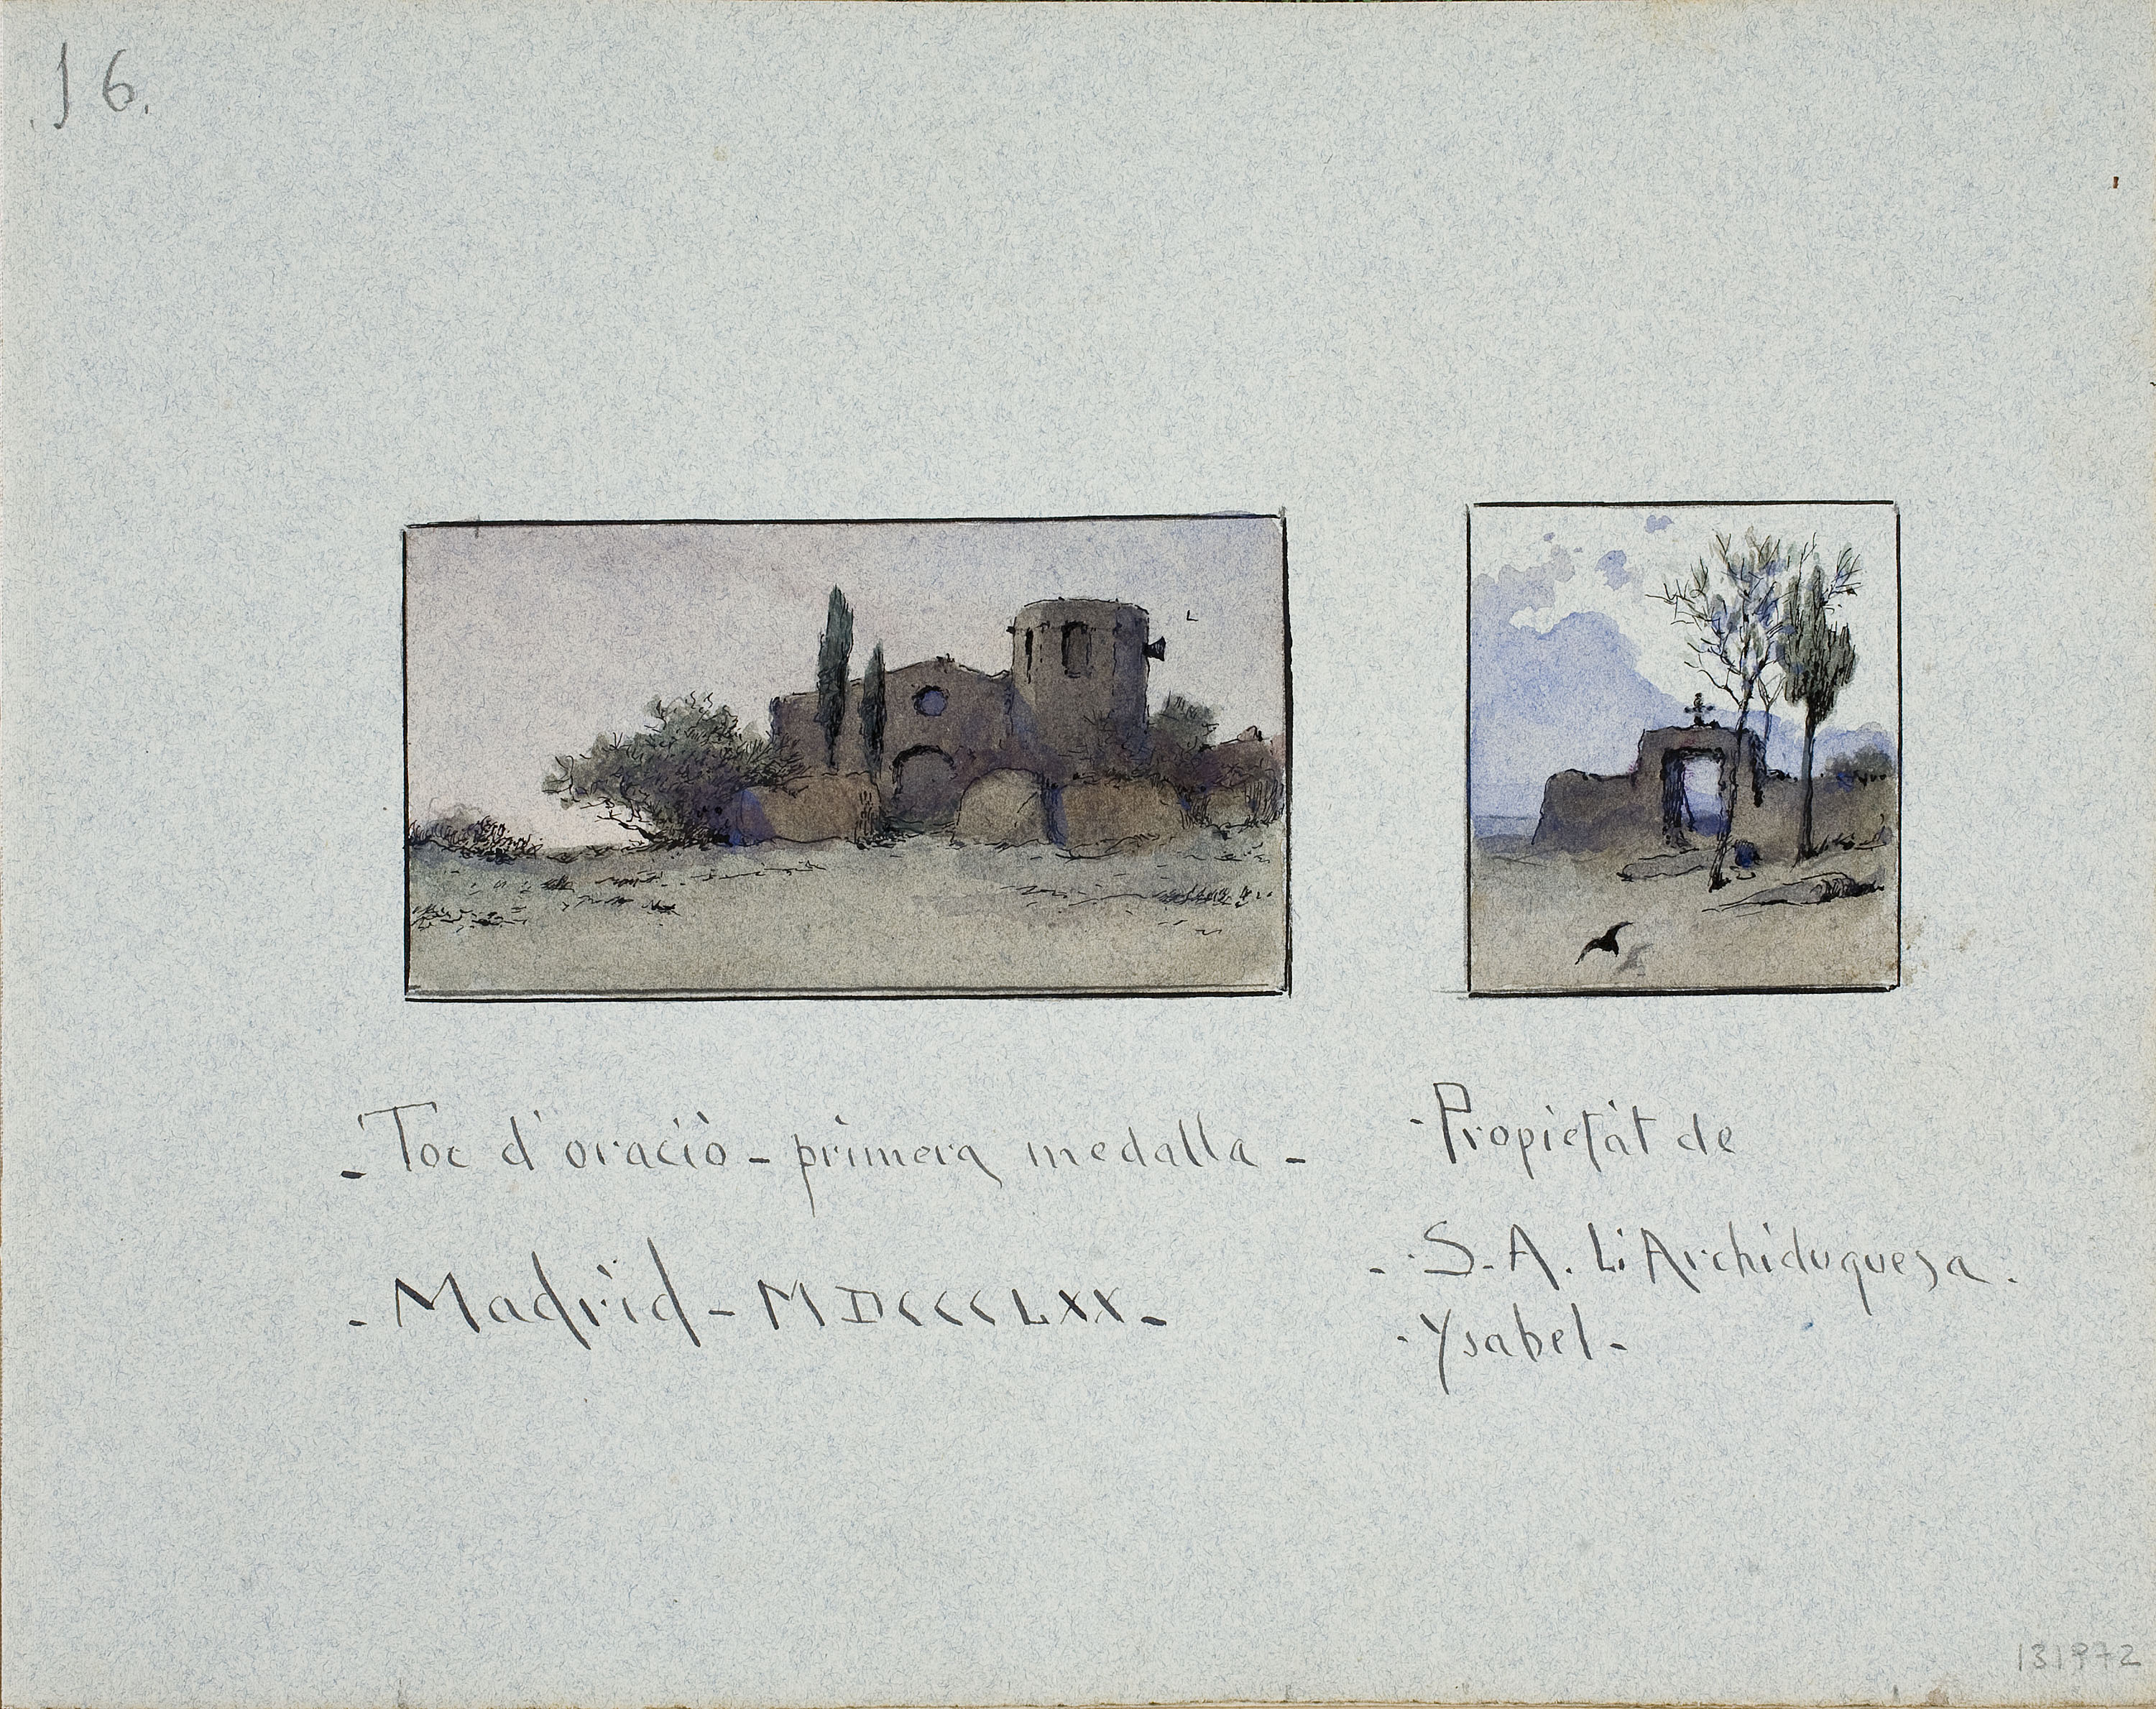 16.
- Toc d'oració - primera medalla -
- Madrid - MDCCCLXX -
- Propietat de
- S. A. L'Archiduquesa.
- Ysabel -
131972